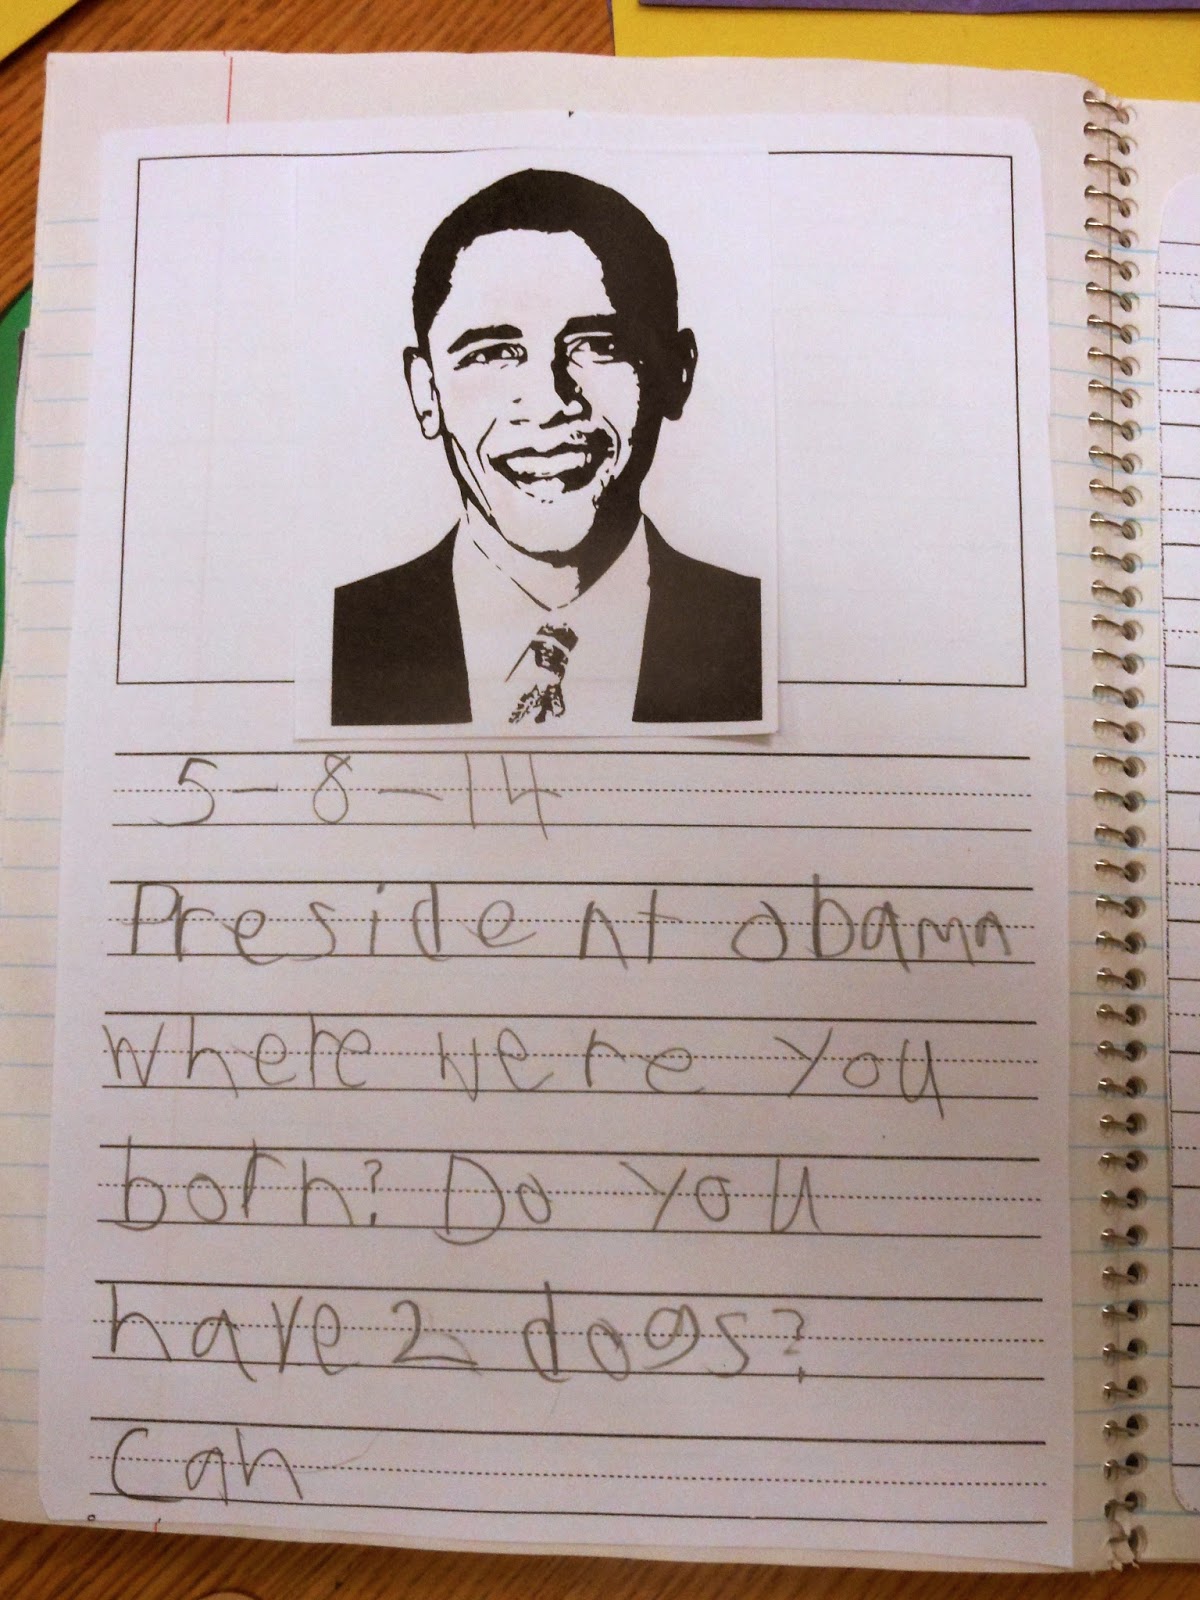 5-8-14
President obama
where were you
born? Do you
have 2 dogs?
Can